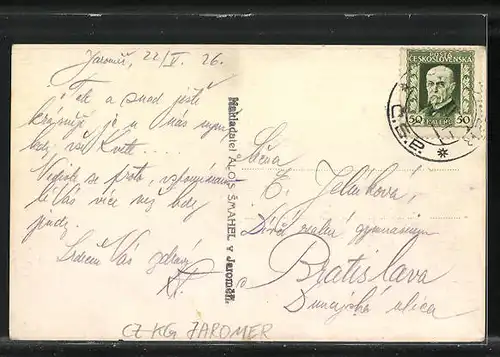 Jaroměř, 22/V. 26.
Tak a snad ještě
krásněji je u nás nyní
kdy vše kvete...
Vás více než kdy
jindy.
Srdcem Vás zdraví
Nakladatel ALOIS ŠMAHEL v Jaroměři.
POŠTA
ČESKOSLOVENSKÁ
50 50
HALÉŘŮ
Č.S.P.
Slečna
E. Jelínková,
Dívčí reálné gymnasium
Bratislava
Dunajská ulica
CZ KG JAROMER